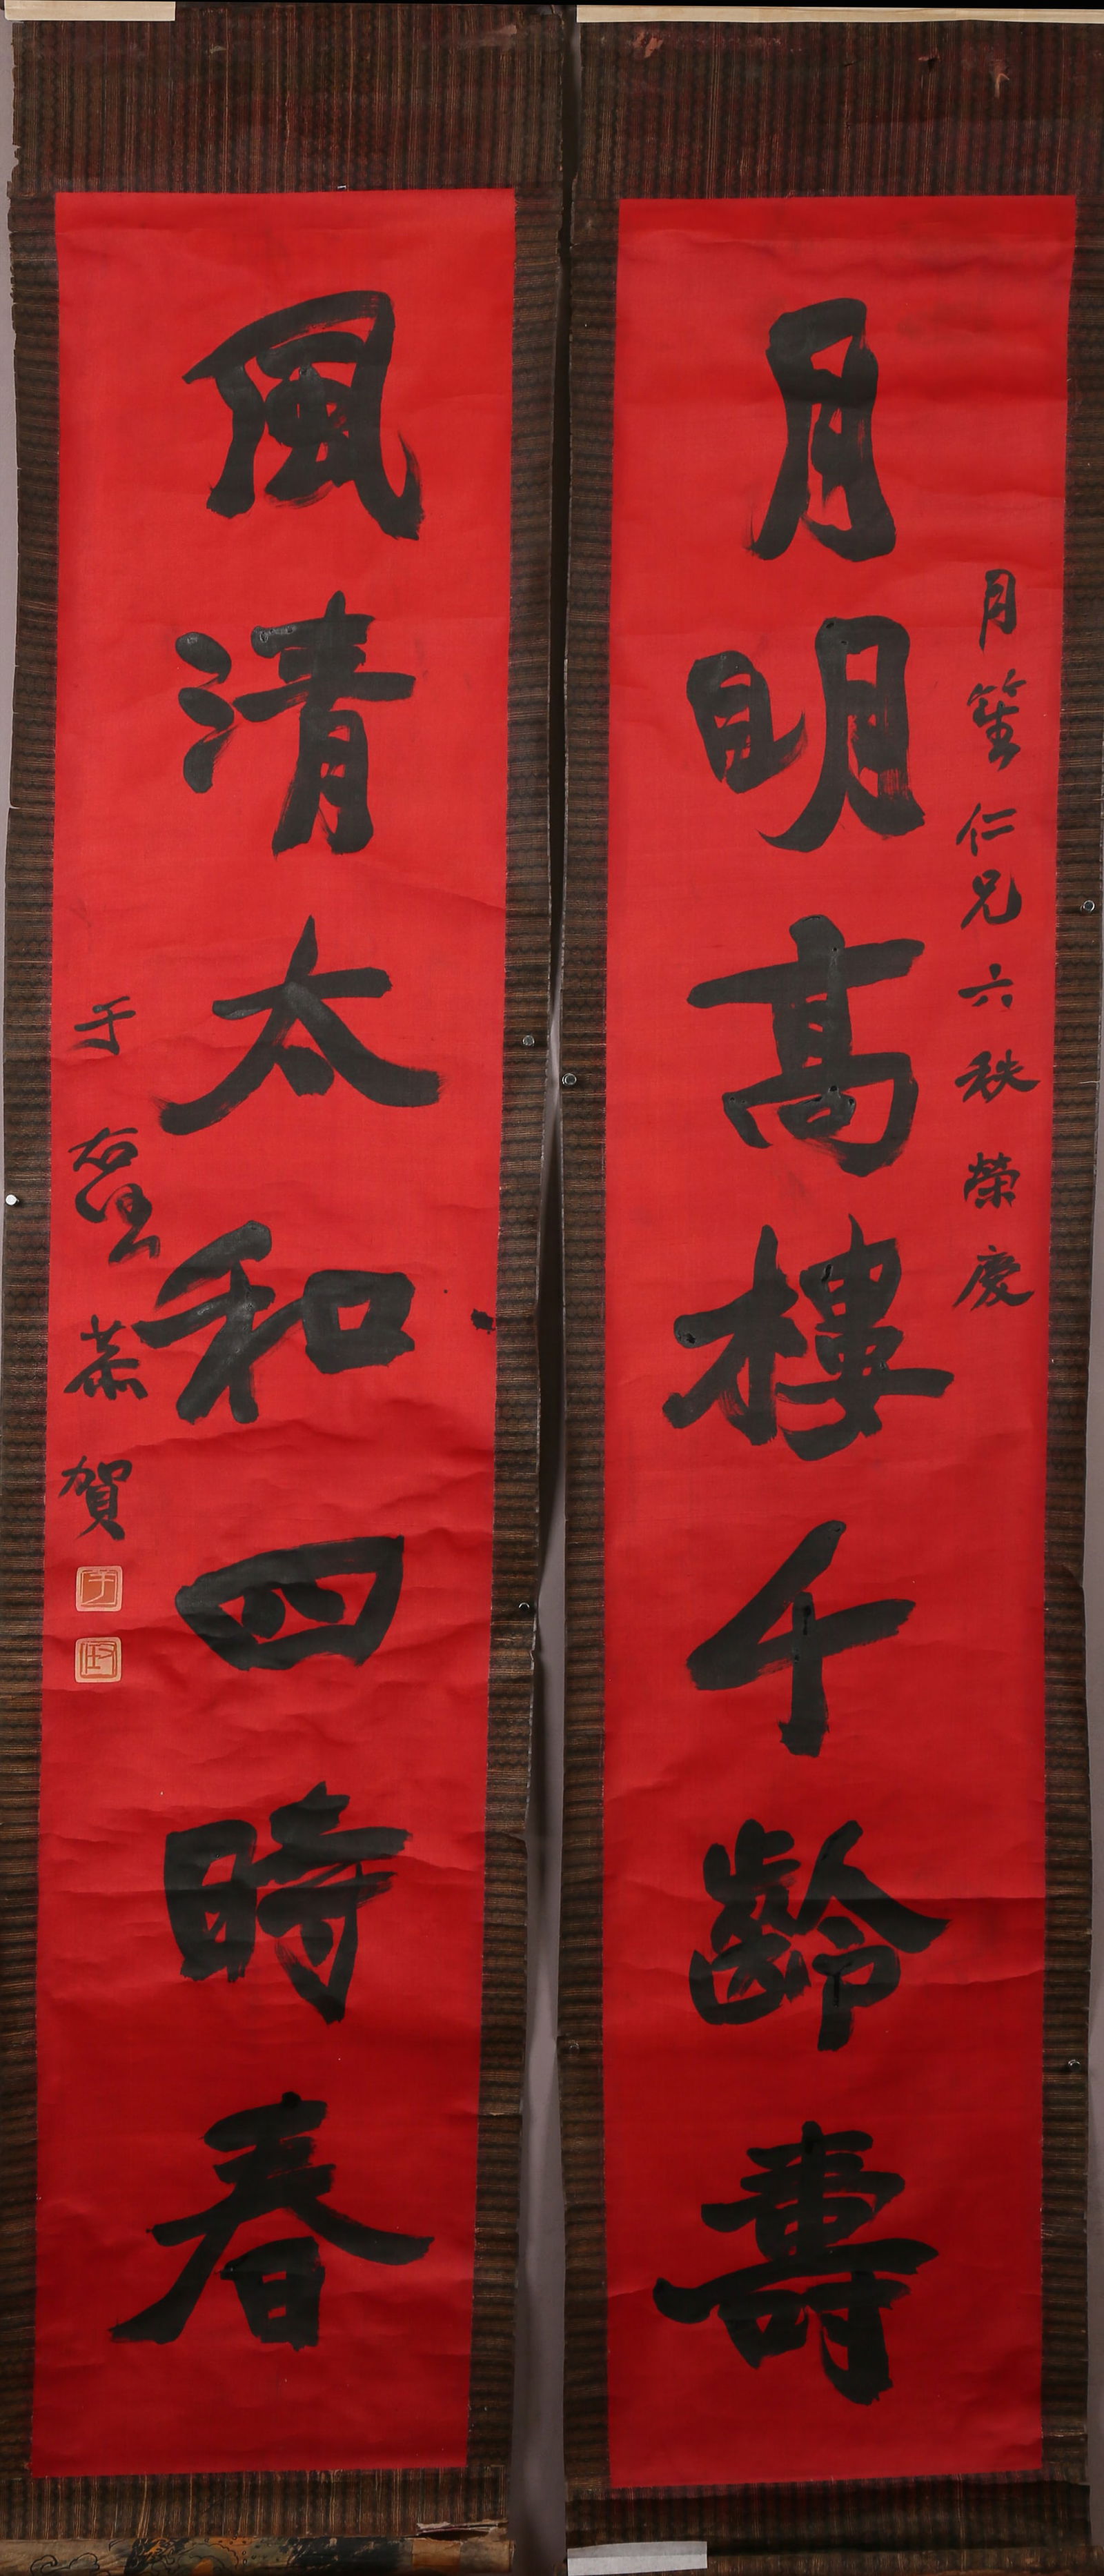 月明高樓千齡壽
月笙仁兄六秩榮慶
風清太和四時春
于右 恭賀
于